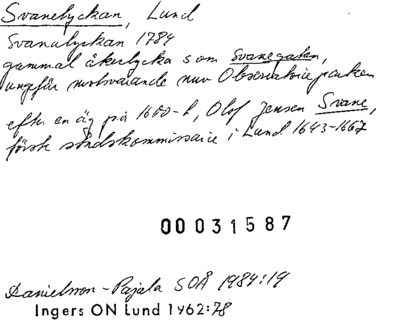 Svanelyckan, Lund
Svanalyckan 1784
gammal åkerlycka som Svanegatan,
ungefär motsvarande nuv Observatorieparken
efter en äg på 1600-t, Olof Jensen Svane,
förste stadskommissarie i Lund 1643-1667
00031587
Danielsson-Pajala SOÅ 1984:19
Ingers ON Lund 1962:78